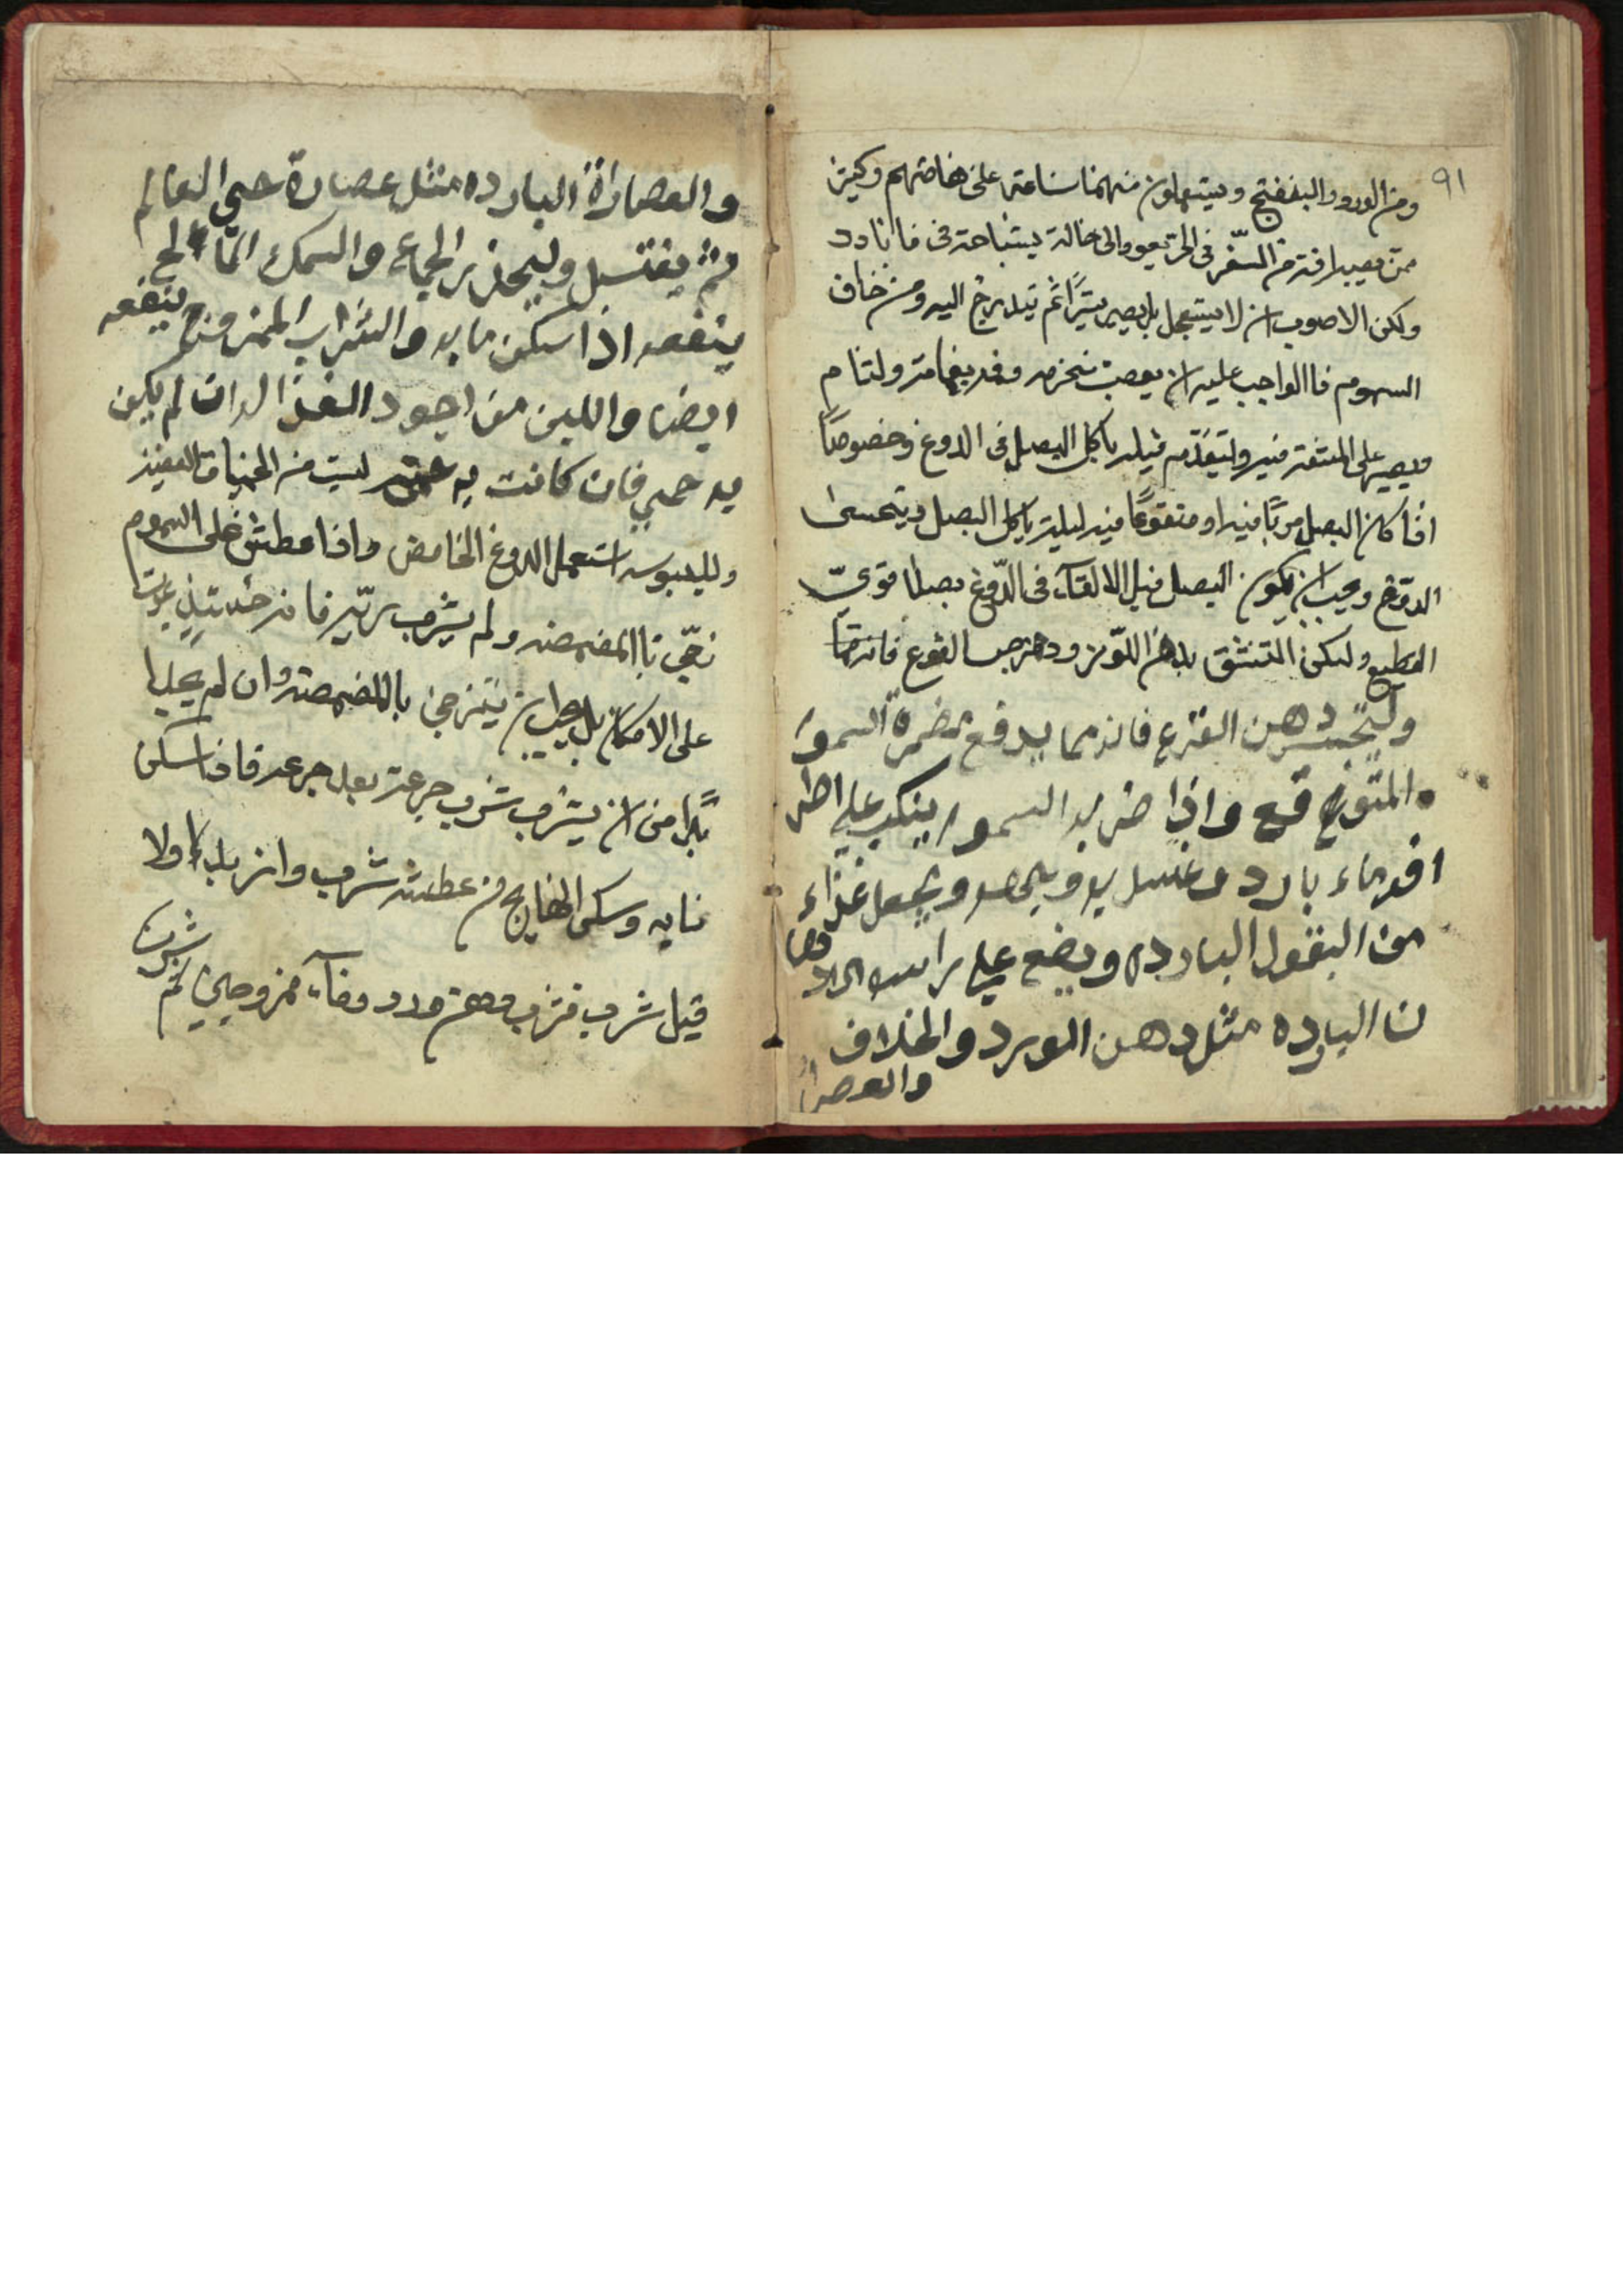 ٩١
ومن الورد والبنفسج ويستعملون منهما ساعة على هامتهم وكثير
ممن يصيبه افة من السفر في الحر يعود الى حاله بسباحته في ماء بارد
ولكن الاصوب ان لا يستعجل بل يصبر يسيرًا ثم يتدرج اليه ومن خاف
السموم فاالواجب عليه ان يعصب منخره وفمه بعمامة ولثام
ويصبر على المشقة فيه وليتقدم قبله باكل البصل في الدوغ وخصوصًا
اذا كان البصل مربًا فيه او منقوعًا فيه ليلة ياكل البصل ويتحسى
الدوغ ويجب ان يكون البصل قبل الالقآء في الدّوغ بصلا قوي
القطيع وليكن التنشق بدهن اللّوز ودهن حب القرع
وليتحسى دهن القرع فانه مما يدفع مضرة السمو
م المتوقع واذا ضرب السموم يسكب على اطر
افه ماء بارد وغسل به وجهه ويجعل غذاء
من البقول البارده ويضع على راسه الادها
ن البارده مثل دهن الورد والخلاف
والعصرا
والعصاراة البارده مثل عصارة حي العالم
ثم يغتسل وليحذر الجماع والسمك المالح
ينفعه اذا سكن ما به والشراب الممزوج ينفعه
ايضا واللبن من اجود الغذا له ان لم يكن
به حمي فان كانت به ليست من الحميات العفنيه
ولليبوسه استعمل الدوغ الحامض واذا عطش على السموم
تمجّى باالمضمضه ولم يشرب ريّه فانه حينئذ يموت
على الامكان بل يجب ان يتزجى باالمضمضه وان لم يجد
بدًّا من ان يشرب شرب جرعة بعد جرعه فاذا سكن
مابه وسكن الهايج من عطشه شرب وان بدأ اولا
قبل شربه فشرب دهن ورد ومآء ممزوجين ثم شرب